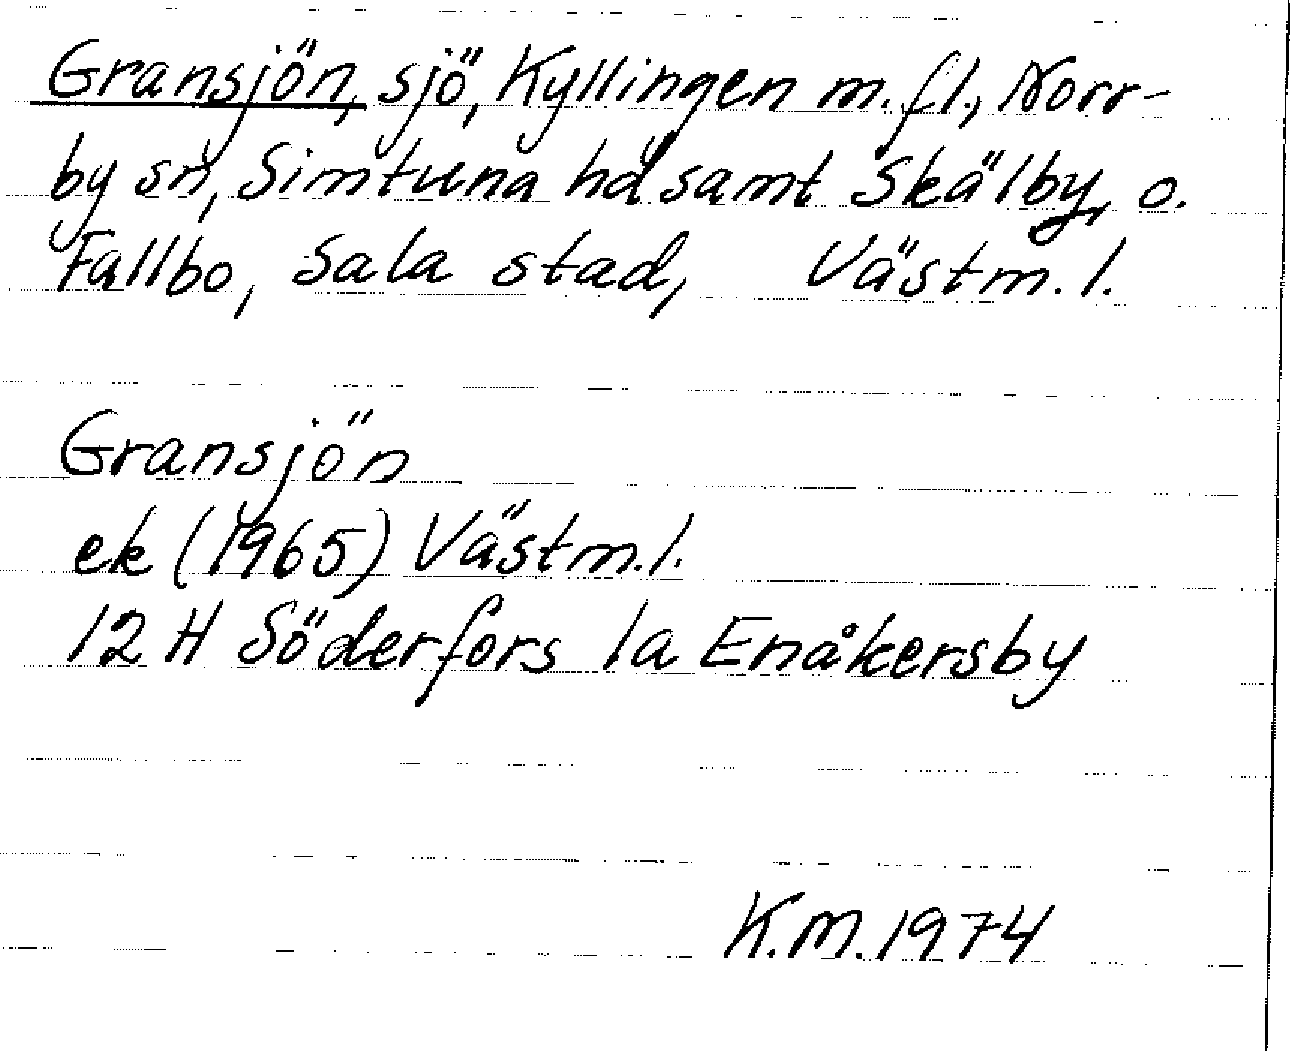 Gransjön, sjö, Kyllingen m.fl., Norr-
by sn, Simtuna hd samt Skälby, o.
Fallbo, Sala stad, Västm.l.
Gransjön
ek (1965) Västm.l.
12 H Söderfors 1a Enåkersby
K.M.1974